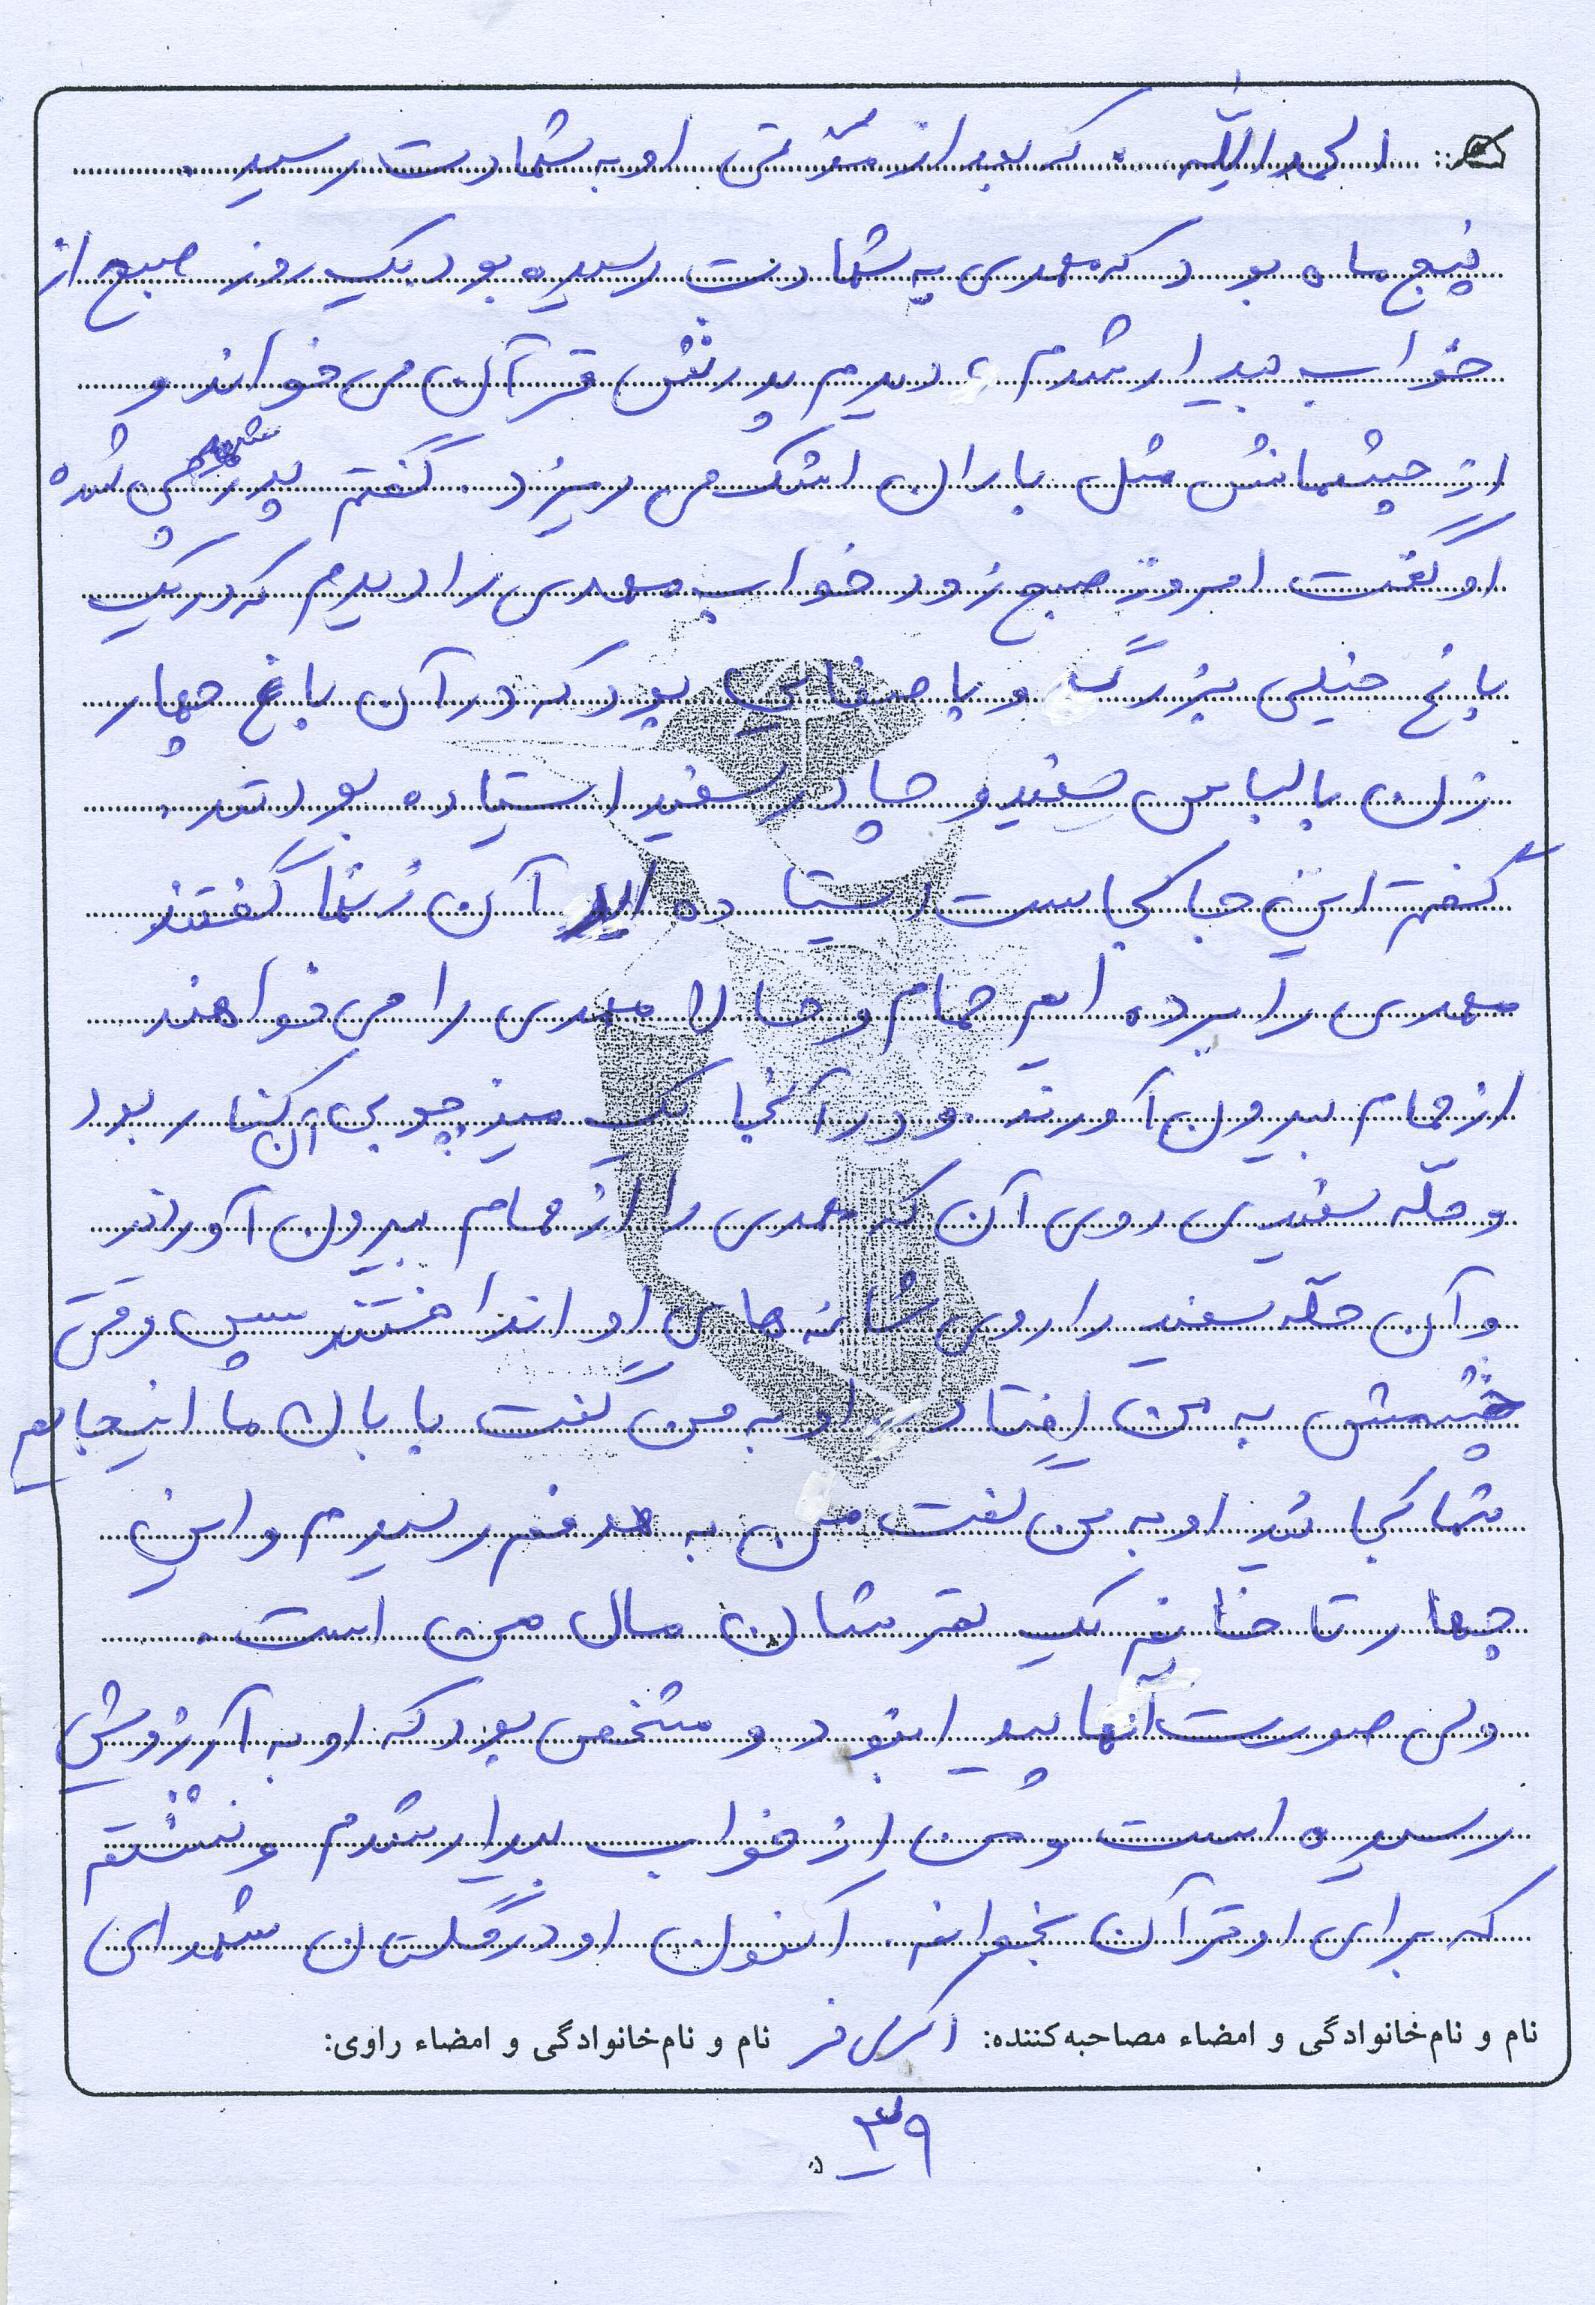 الحمداللّه. که بعد از مشرّفی او به شهادت رسید.
پنج ماه بود که مهدی به شهادت رسیده بود یک روز صبح از
خواب بیدار شدم، دیدم پدرش قرآن می خواند و
از چشمانش مثل باران اشک می ریزد. گفتم پدر شهید چی شده
او گفت امروز صبح زود خواب مهدی را دیدم که در یک
باغ خیلی بزرگ و باصفایی بود که در آن باغ چهار
زن با لباس سفید و چادر سفید استاده بودند.
گفتم این جا کجاست استاده اید آن زنها گفتند
مهدی را برده ایم حمام و حالا مهدی را می خواهند
از حمام بیرون آورند. و در آنجا یک میز چوبی آن کنار بود
و حلّه سفیدی روی آن که مهدی را از حمام بیرون آوردند
و آن حلّه سفید را روی شانه های او انداختند سپس وقتی
چشمش به من افتاد. او به من گفت بابا الان ما اینجایم
شما کجائید او به من گفت من به هدفم رسیدم و این
چهار تا خانم یک نفرشان مال من است.
ولی صورت آنها پیدا نبود و مشخص بود که او به آرزویش
رسیده است و من از خواب بیدار شدم و نشستم
که برای او قرآن بخوانم. اکنون او در گلستان شهدای
نام و نام‌خانوادگی و امضاء مصاحبه‌کننده: نام و نام‌خانوادگی و امضاء راوی:
۳۹